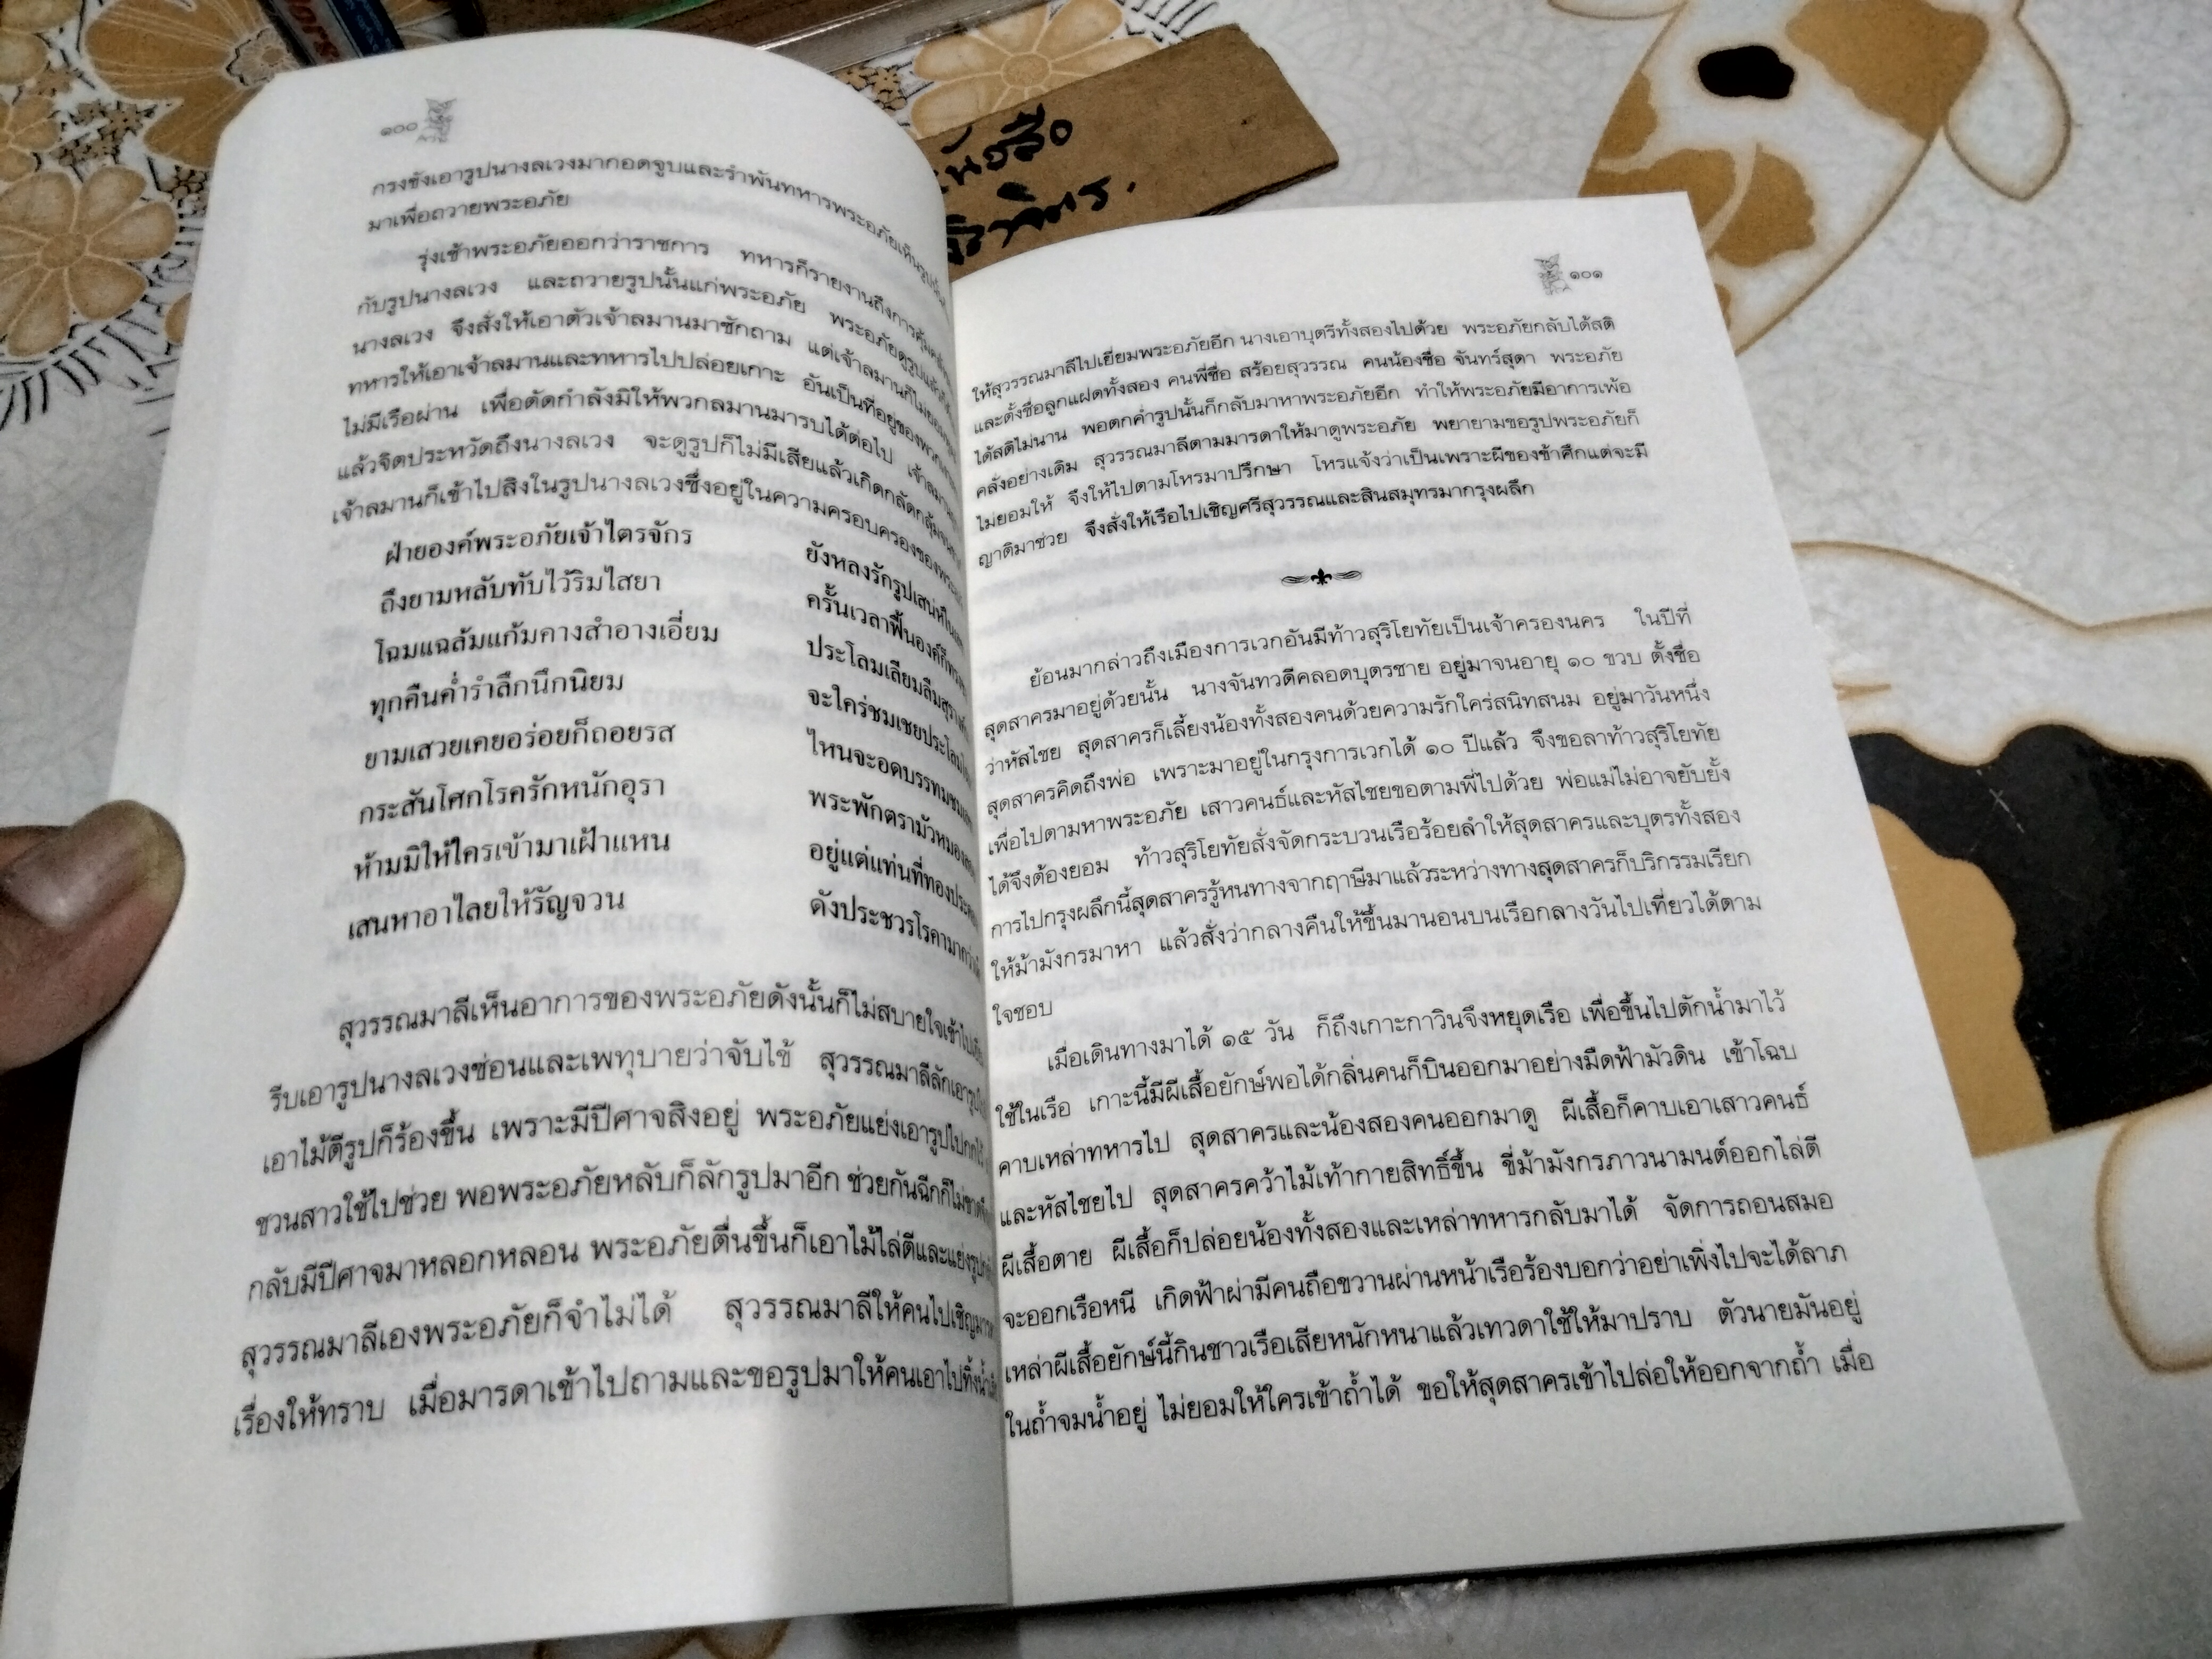 ๑๐๐
กรงขังเอารูปนางลเวงมากอดจูบและรำพันทหารพระอภัยเห็นรูปนั้น
มาเพื่อถวายพระอภัย
รุ่งเช้าพระอภัยออกว่าราชการ ทหารก็รายงานถึงการคุ้มคลั่ง
กับรูปนางลเวง และถวายรูปนั้นแก่พระอภัย พระอภัยดูรูปแล้วให้
นางลเวง จึงสั่งให้เอาตัวเจ้าลมานมาซักถาม แต่เจ้าลมานก็ไม่ยอม
ทหารให้เอาเจ้าลมานและทหารไปปล่อยเกาะ อันเป็นที่อยู่ของพวก
ไม่มีเรือผ่าน เพื่อตัดกำลังมิให้พวกลมานมารบได้ต่อไป เจ้าลมาน
แล้วจิตประหวัดถึงนางลเวง จะดูรูปก็ไม่มีเสียแล้วเกิดกลัดกลุ้มจน
เจ้าลมานก็เข้าไปสิงในรูปนางลเวงซึ่งอยู่ในความครอบครองของพระ
ฝ่ายองค์พระอภัยเจ้าไตรจักร ยังหลงรักรูปเสน่ห์ใน
ถึงยามหลับทับไว้ริมไสยา ครั้นเวลาฟื้นองค์ก็
โฉมแฉล้มแก้มคางสำอางเอี่ยม ประโลมเลียมลืม
ทุกคืนค่ำรำลึกนึกนิยม จะใคร่ชมเชยประโลม
ยามเสวยเคยอร่อยก็ถอยรส ไหนจะอดบรรทมชม
กระสันโศกโรครักหนักอุรา พระพักตรามัวหมอง
ห้ามมิให้ใครเข้ามาเฝ้าแหน อยู่แต่แท่นที่ทอง
เสนหาอาไลยให้รัญจวน ดังประชวรโรคามากว่า
สุวรรณมาลีเห็นอาการของพระอภัยดังนั้นก็ไม่สบายใจเข้าไป
รีบเอารูปนางลเวงซ่อนและเพทุบายว่าจับไข้ สุวรรณมาลีลักเอารูป
เอาไม้ตีรูปก็ร้องขึ้น เพราะมีปีศาจสิงอยู่ พระอภัยแย่งเอารูปไปกกไว้
ชวนสาวใช้ไปช่วย พอพระอภัยหลับก็ลักรูปมาอีก ช่วยกันฉีกก็ไม่ขาด
กลับมีปีศาจมาหลอกหลอน พระอภัยตื่นขึ้นก็เอาไม้ไล่ตีและแย่งรูป
สุวรรณมาลีเองพระอภัยก็จำไม่ได้ สุวรรณมาลีให้คนไปเชิญ
เรื่องให้ทราบ เมื่อมารดาเข้าไปถามและขอรูปมาให้คนเอาไปทิ้งน้ำ
๑๐๑
ให้สุวรรณมาลีไปเยี่ยมพระอภัยอีก นางเอาบุตรีทั้งสองไปด้วย พระอภัยกลับได้สติ
และตั้งชื่อลูกแฝดทั้งสอง คนพี่ชื่อ สร้อยสุวรรณ คนน้องชื่อ จันทร์สุดา พระอภัย
ได้สติไม่นาน พอตกค่ำรูปนั้นก็กลับมาหาพระอภัยอีก ทำให้พระอภัยมีอาการเพ้อ
คลั่งอย่างเดิม สุวรรณมาลีตามมารดาให้มาดูพระอภัย พยายามขอรูปพระอภัยก็
ไม่ยอมให้ จึงให้ไปตามโหรมาปรึกษา โหรแจ้งว่าเป็นเพราะผีของข้าศึกแต่จะมี
ญาติมาช่วย จึงสั่งให้เรือไปเชิญศรีสุวรรณและสินสมุทรมากรุงผลึก
ย้อนมากล่าวถึงเมืองการเวกอันมีท้าวสุริโยทัยเป็นเจ้าครองนคร ในปีที่
สุดสาครมาอยู่ด้วยนั้น นางจันทวดีคลอดบุตรชาย อยู่มาจนอายุ ๑๐ ขวบ ตั้งชื่อ
ว่าหัสไชย สุดสาครก็เลี้ยงน้องทั้งสองคนด้วยความรักใคร่สนิทสนม อยู่มาวันหนึ่ง
สุดสาครคิดถึงพ่อ เพราะมาอยู่ในกรุงการเวกได้ ๑๐ ปีแล้ว จึงขอลาท้าวสุริโยทัย
เพื่อไปตามหาพระอภัย เสาวคนธ์และหัสไชยขอตามพี่ไปด้วย พ่อแม่ไม่อาจยับยั้ง
ได้จึงต้องยอม ท้าวสุริโยทัยสั่งจัดกระบวนเรือร้อยลำให้สุดสาครและบุตรทั้งสอง
การไปกรุงผลึกนี้สุดสาครรู้หนทางจากฤาษีมาแล้วระหว่างทางสุดสาครก็บริกรรมเรียก
ให้ม้ามังกรมาหา แล้วสั่งว่ากลางคืนให้ขึ้นมานอนบนเรือกลางวันไปเที่ยวได้ตาม
ใจชอบ
เมื่อเดินทางมาได้ ๑๕ วัน ก็ถึงเกาะกาวินจึงหยุดเรือ เพื่อขึ้นไปตักน้ำมาไว้
ใช้ในเรือ เกาะนี้มีผีเสื้อยักษ์พอได้กลิ่นคนก็บินออกมาอย่างมืดฟ้ามัวดิน เข้าโฉบ
คาบเหล่าทหารไป สุดสาครและน้องสองคนออกมาดู ผีเสื้อก็คาบเอาเสาวคนธ์
และหัสไชยไป สุดสาครคว้าไม้เท้ากายสิทธิ์ขึ้น ขี่ม้ามังกรภาวนามนต์ออกไล่ตี
ผีเสื้อตาย ผีเสื้อก็ปล่อยน้องทั้งสองและเหล่าทหารกลับมาได้ จัดการถอนสมอ
จะออกเรือหนี เกิดฟ้าผ่ามีคนถือขวานผ่านหน้าเรือร้องบอกว่าอย่าเพิ่งไปจะได้ลาภ
เหล่าผีเสื้อยักษ์นี้กินชาวเรือเสียหนักหนาแล้วเทวดาใช้ให้มาปราบ ตัวนายมันอยู่
ในถ้ำจมน้ำอยู่ ไม่ยอมให้ใครเข้าถ้ำได้ ขอให้สุดสาครเข้าไปล่อให้ออกจากถ้ำ เมื่อ